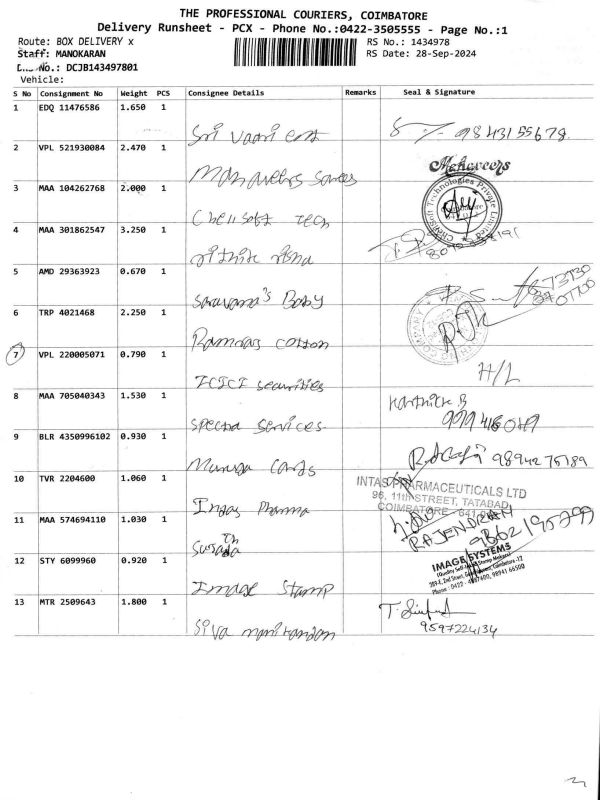 THE PROFESSIONAL COURIERS, COIMBATORE
Delivery Runsheet - PCX - Phone No.:0422-3505555 - Page No.:1
Route: BOX DELIVERY x
RS No.: 1434978
Staff: MANOKARAN
RS Date: 28-Sep-2024
No.: DCJB143497801
Vehicle:
S No Consignment No Weight PCS Consignee Details Remarks Seal & Signature
1 EDQ 11476586 1.650 1
Sri Vaari 9843155678
2 VPL 521930084 2.470 1
Mahaveers
3 MAA 104262768 2.000 1
Chellsoft Tech
4 MAA 301862547 3.250 1
5 AMD 29363923 0.670 1
Saravana's Baby
6 TRP 4021468 2.250 1
Ramraj Cotton
7 VPL 220005071 0.790 1
H/L
ICICI Securities
8 MAA 705040343 1.530 1
Karthick B
Spectra Services
9 BLR 4350996102 0.930 1
Muruga Cards 9894275189
10 TVR 2204600 1.060 1
INTAS PHARMACEUTICALS LTD
96, 11th STREET, TATABAD
COIMBATORE
Intas Pharma
11 MAA 574694110 1.030 1
RAJENDRAN
9862195299
Sujatha
12 STY 6099960 0.920 1
IMAGE SYSTEMS
Image Stamp
13 MTR 2509643 1.800 1
9597224134
Siva Manikandan